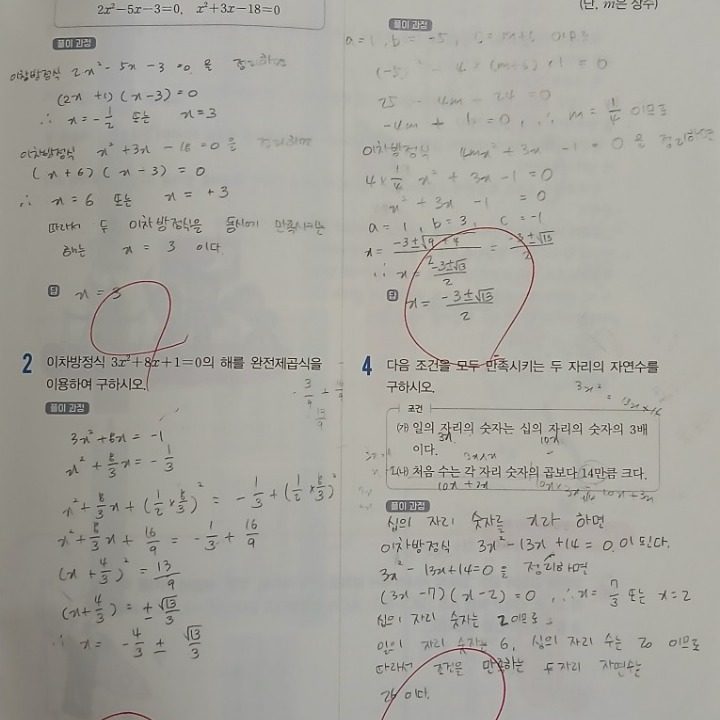 2x²-5x-3=0, x²+3x-18=0
풀이 과정
이차방정식 2x² - 5x - 3 = 0 을 정리하면
(2x+1)(x-3)=0
∴ x = -1/2 또는 x=3
이차방정식 x² + 3x - 18 = 0 을 정리하면
(x+6)(x-3) = 0
∴ x = 6 또는 x = +3
따라서 두 이차방정식을 동시에 만족시키는
해는 x = 3 이다.
답 x = 3
2 이차방정식 3x²+8x+1=0의 해를 완전제곱식을
이용하여 구하시오.
풀이 과정
3x²+8x = -1
x² + 8/3 x = -1/3
x² + 8/3 x + (1/2 × 8/3)² = -1/3 + (1/2 × 8/3)²
x² + 8/3 x + 16/9 = -1/3 + 16/9
(x + 4/3)² = 13/9
(x + 4/3) = ± √13/3
∴ x = -4/3 ± √13/3
(단, m은 상수)
풀이 과정
a=1, b=-5, c=m+6 이므로
(-5)² - 4 × (m+6) × 1 = 0
25 - 4m - 24 = 0
-4m + 1 = 0, ∴ m = 1/4 이므로
이차방정식 4mx² + 3x - 1 = 0 을 정리하면
4 × 1/4 x² + 3x - 1 = 0
x² + 3x - 1 = 0
a = 1, b = 3, c = -1
x = (-3±√(9+4))/2 = (-3±√13)/2
∴ x = (-3±√13)/2
답 x = (-3±√13)/2
4 다음 조건을 모두 만족시키는 두 자리의 자연수를
구하시오.
조건
(가) 일의 자리의 숫자는 십의 자리의 숫자의 3배
이다.
(나) 처음 수는 각 자리 숫자의 곱보다 14만큼 크다.
풀이 과정
십의 자리 숫자를 x라 하면
이차방정식 3x² - 13x + 14 = 0 이 된다.
3x² - 13x + 14 = 0 을 정리하면
(3x-7)(x-2) = 0, ∴ x = 7/3 또는 x=2
십의 자리 숫자는 2이므로
일의 자리 숫자는 6, 십의 자리 수는 20 이므로
따라서 조건을 만족하는 두자리 자연수는
26 이다.